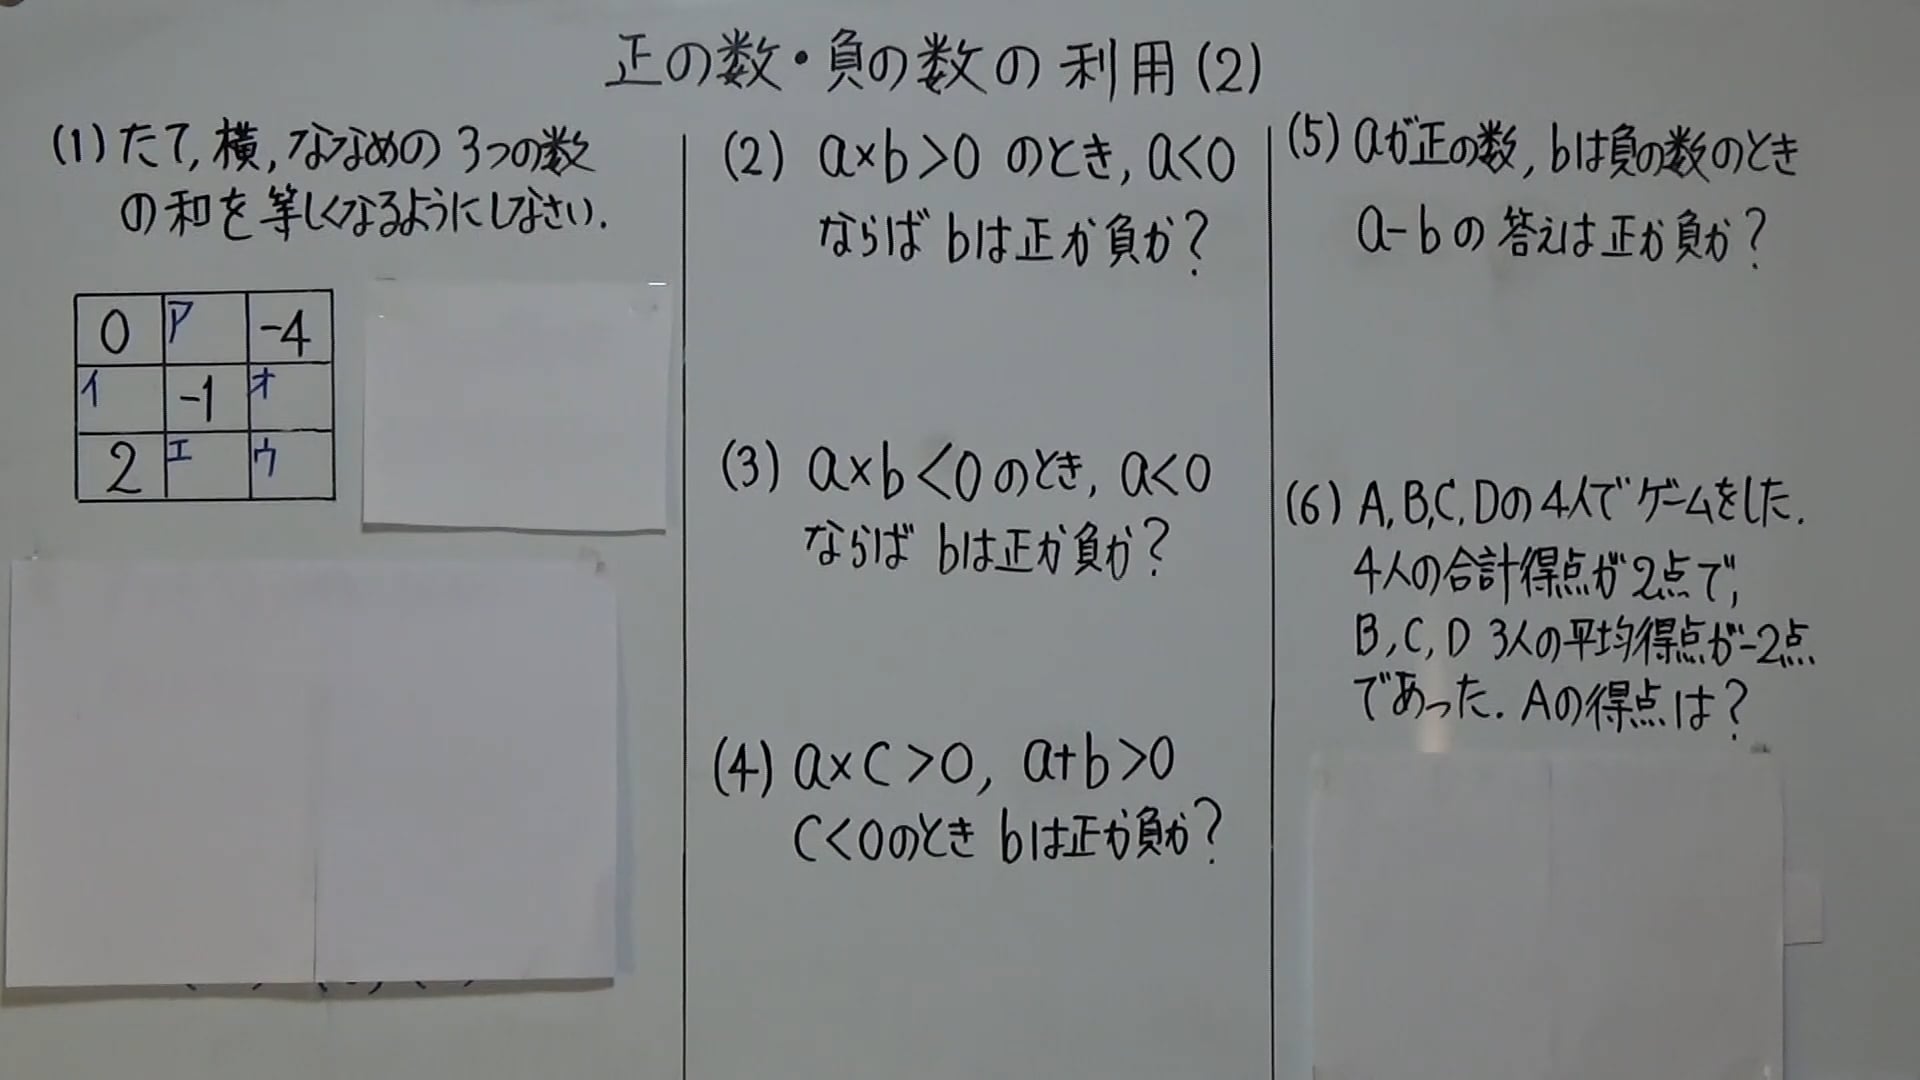 正の数・負の数の利用(2)
(1)たて,横,ななめの3つの数
の和を等しくなるようにしなさい.
0 ア -4
イ -1 オ
2 エ ウ
(2) a×b>0 のとき, a<0
ならば bは正か負か?
(3) a×b<0のとき, a<0
ならば bは正か負か?
(4) a×c>0, a+b>0
c<0のとき bは正か負か?
(5) aが正の数, bは負の数のとき
a-bの 答えは正か負か?
(6) A,B,C,Dの4人でゲームをした.
4人の合計得点が2点で,
B,C,D 3人の平均得点が-2点
であった. Aの得点は?